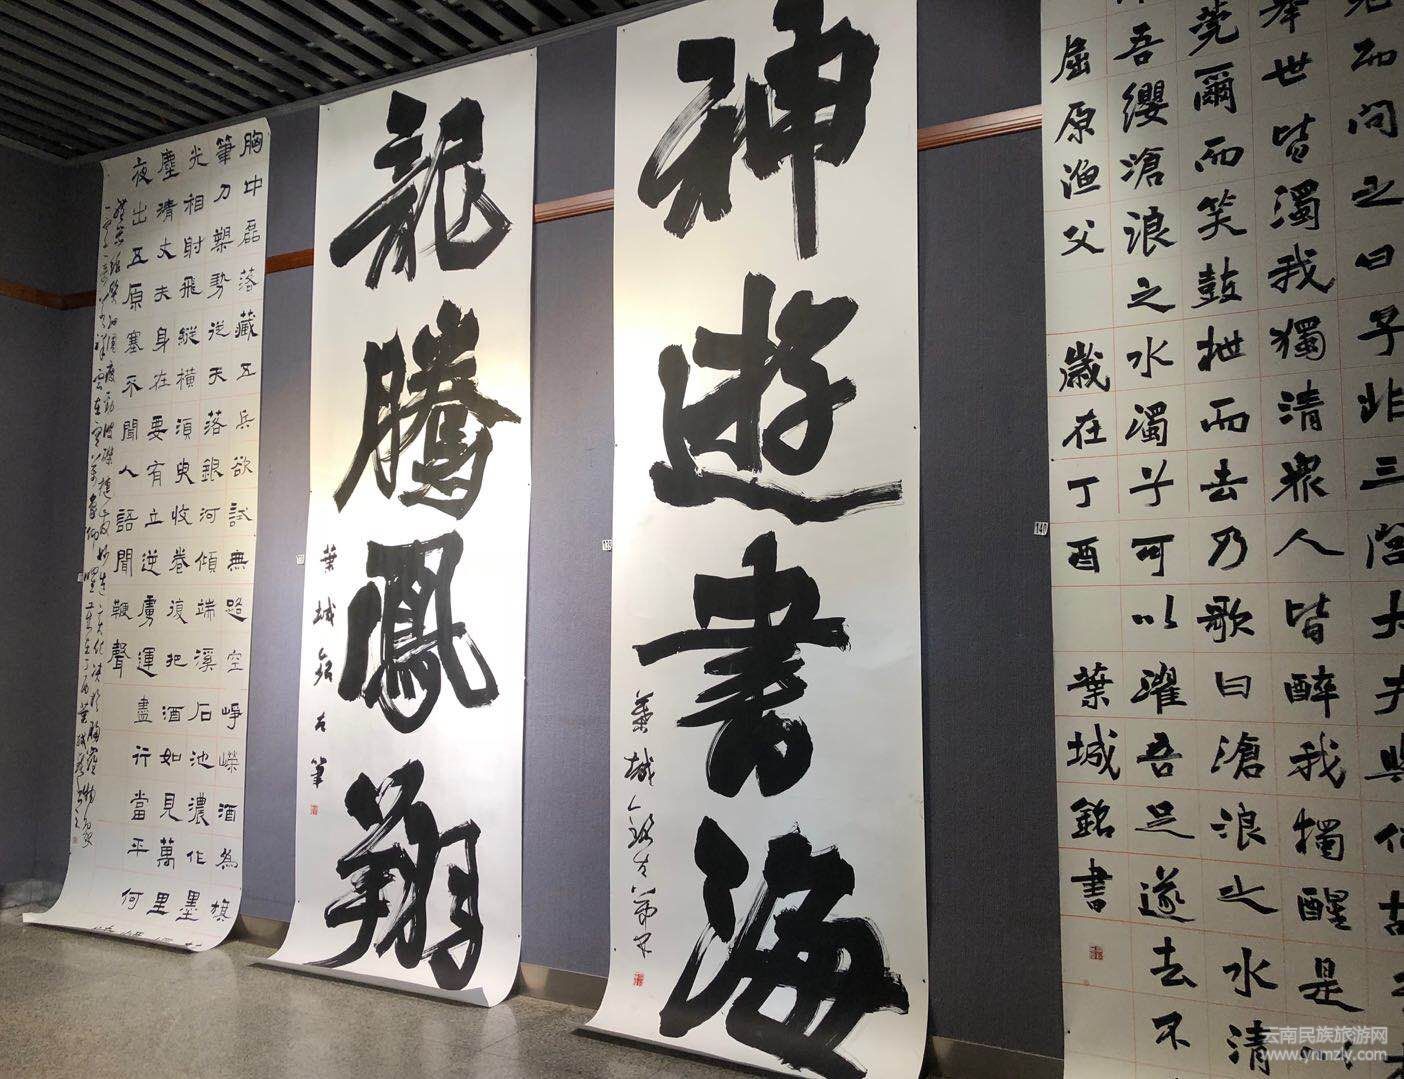 而問之曰子非三閭大夫與何故
舉世皆濁我獨清衆人皆醉我獨醒是以
莞爾而笑鼓枻而去乃歌曰滄浪之水清
吾纓滄浪之水濁兮可以濯吾足遂去不
屈原漁父 歲在丁酉 葉城銘書
140
神遊書海
葉城銘左筆
139
龍騰鳳翔
葉城銘左筆
胸中磊落藏五兵欲試無路空崢嶸酒為旗
筆刀槊勢從天落銀河傾端溪石池濃作墨
光相射飛縱橫須臾收卷復把酒如見萬里
塵清丈夫身在要有立逆虜運盡行當平何
夜出五原塞不聞人語聞鞭聲
云南民族旅游网
www.ynmzly.com